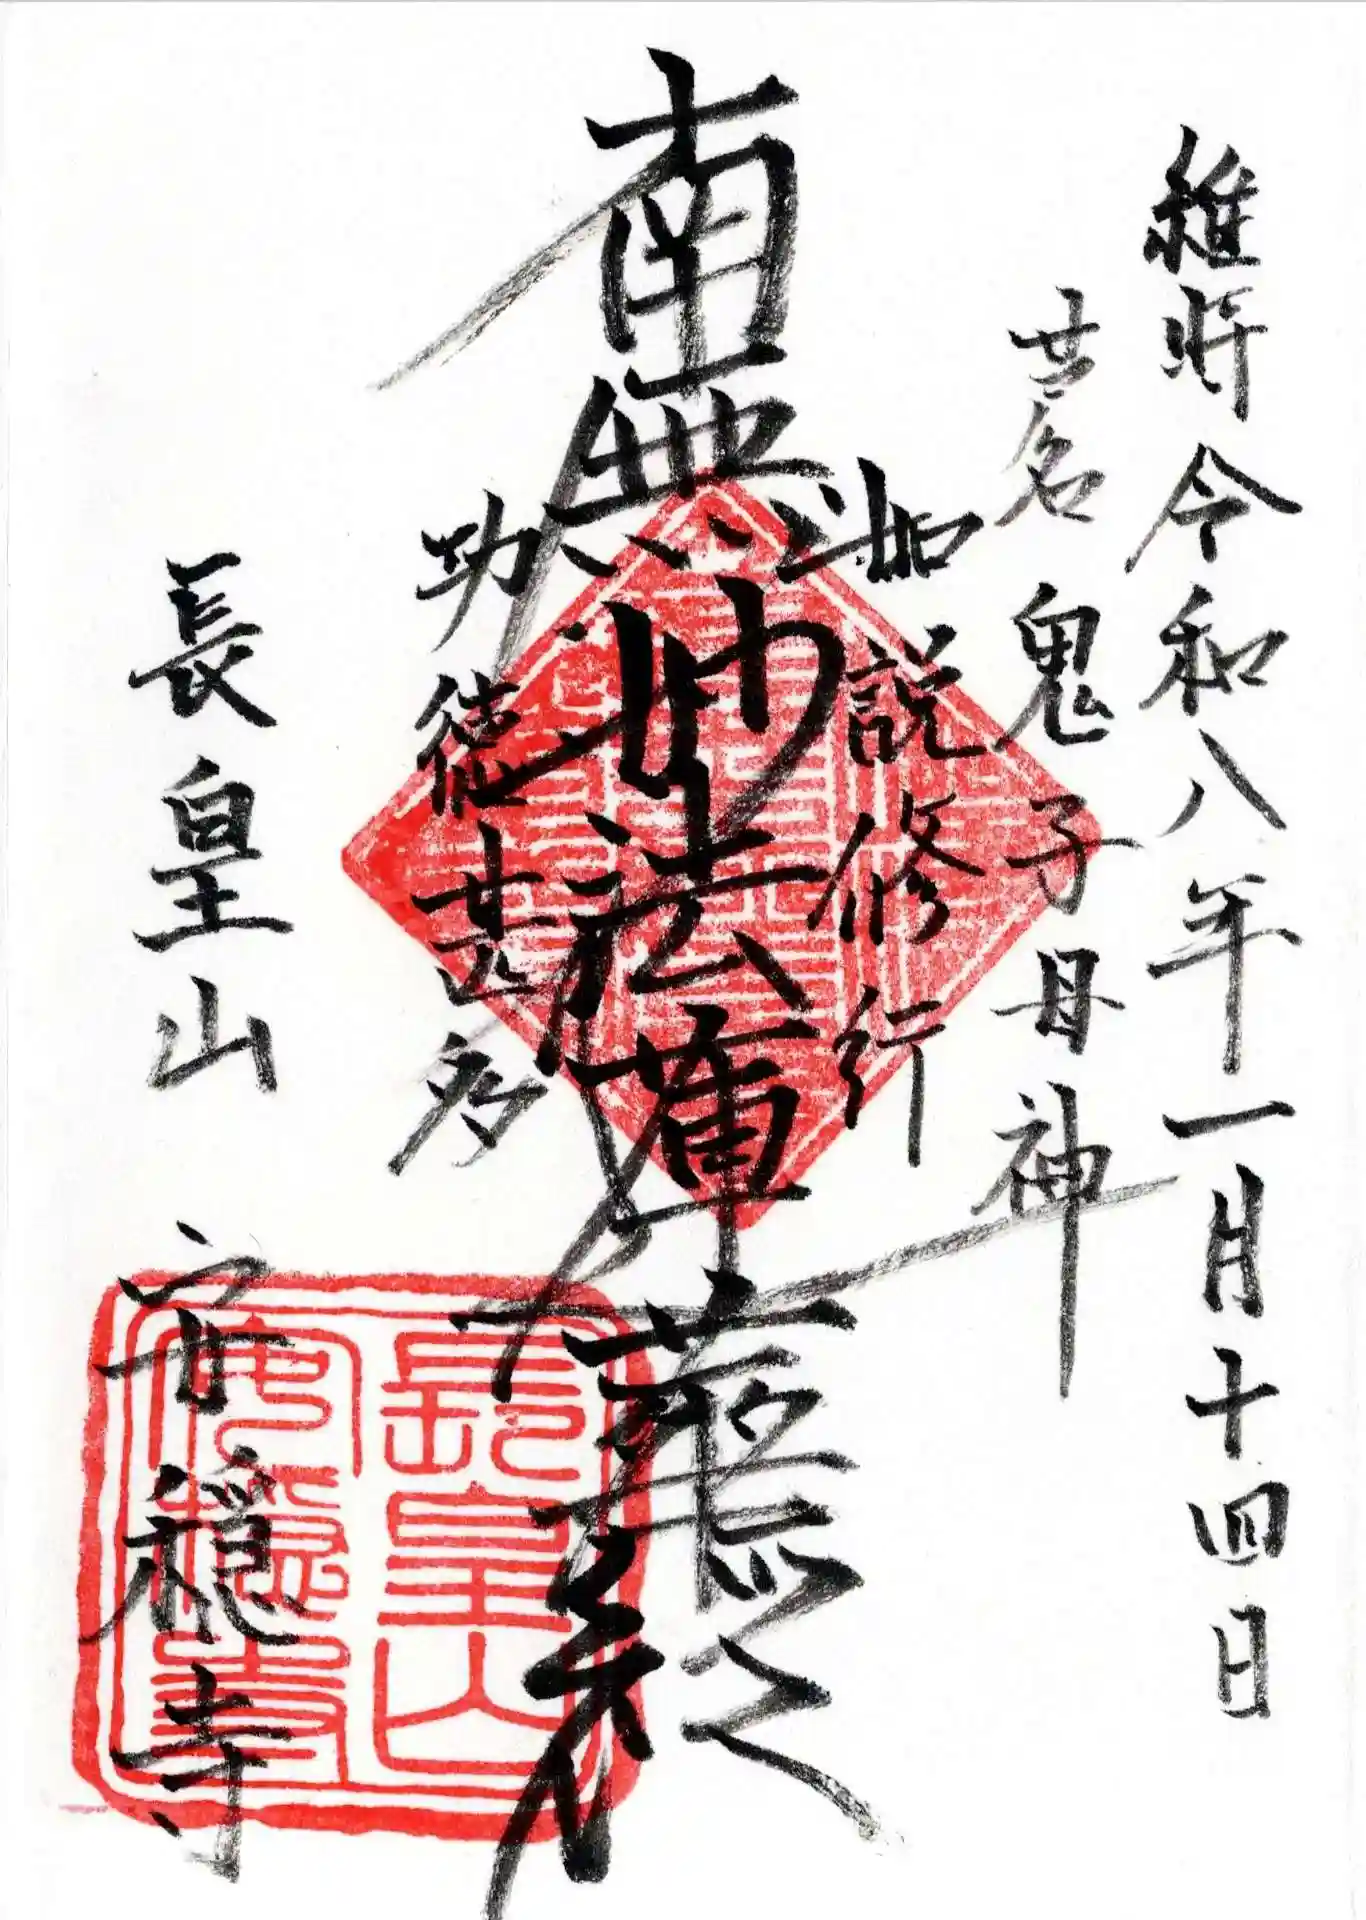 維時令和八年一月十四日
鬼子母神
如説修行
南無妙法蓮華経
功徳甚多
長皇山 安穏寺
長皇山
安穏寺